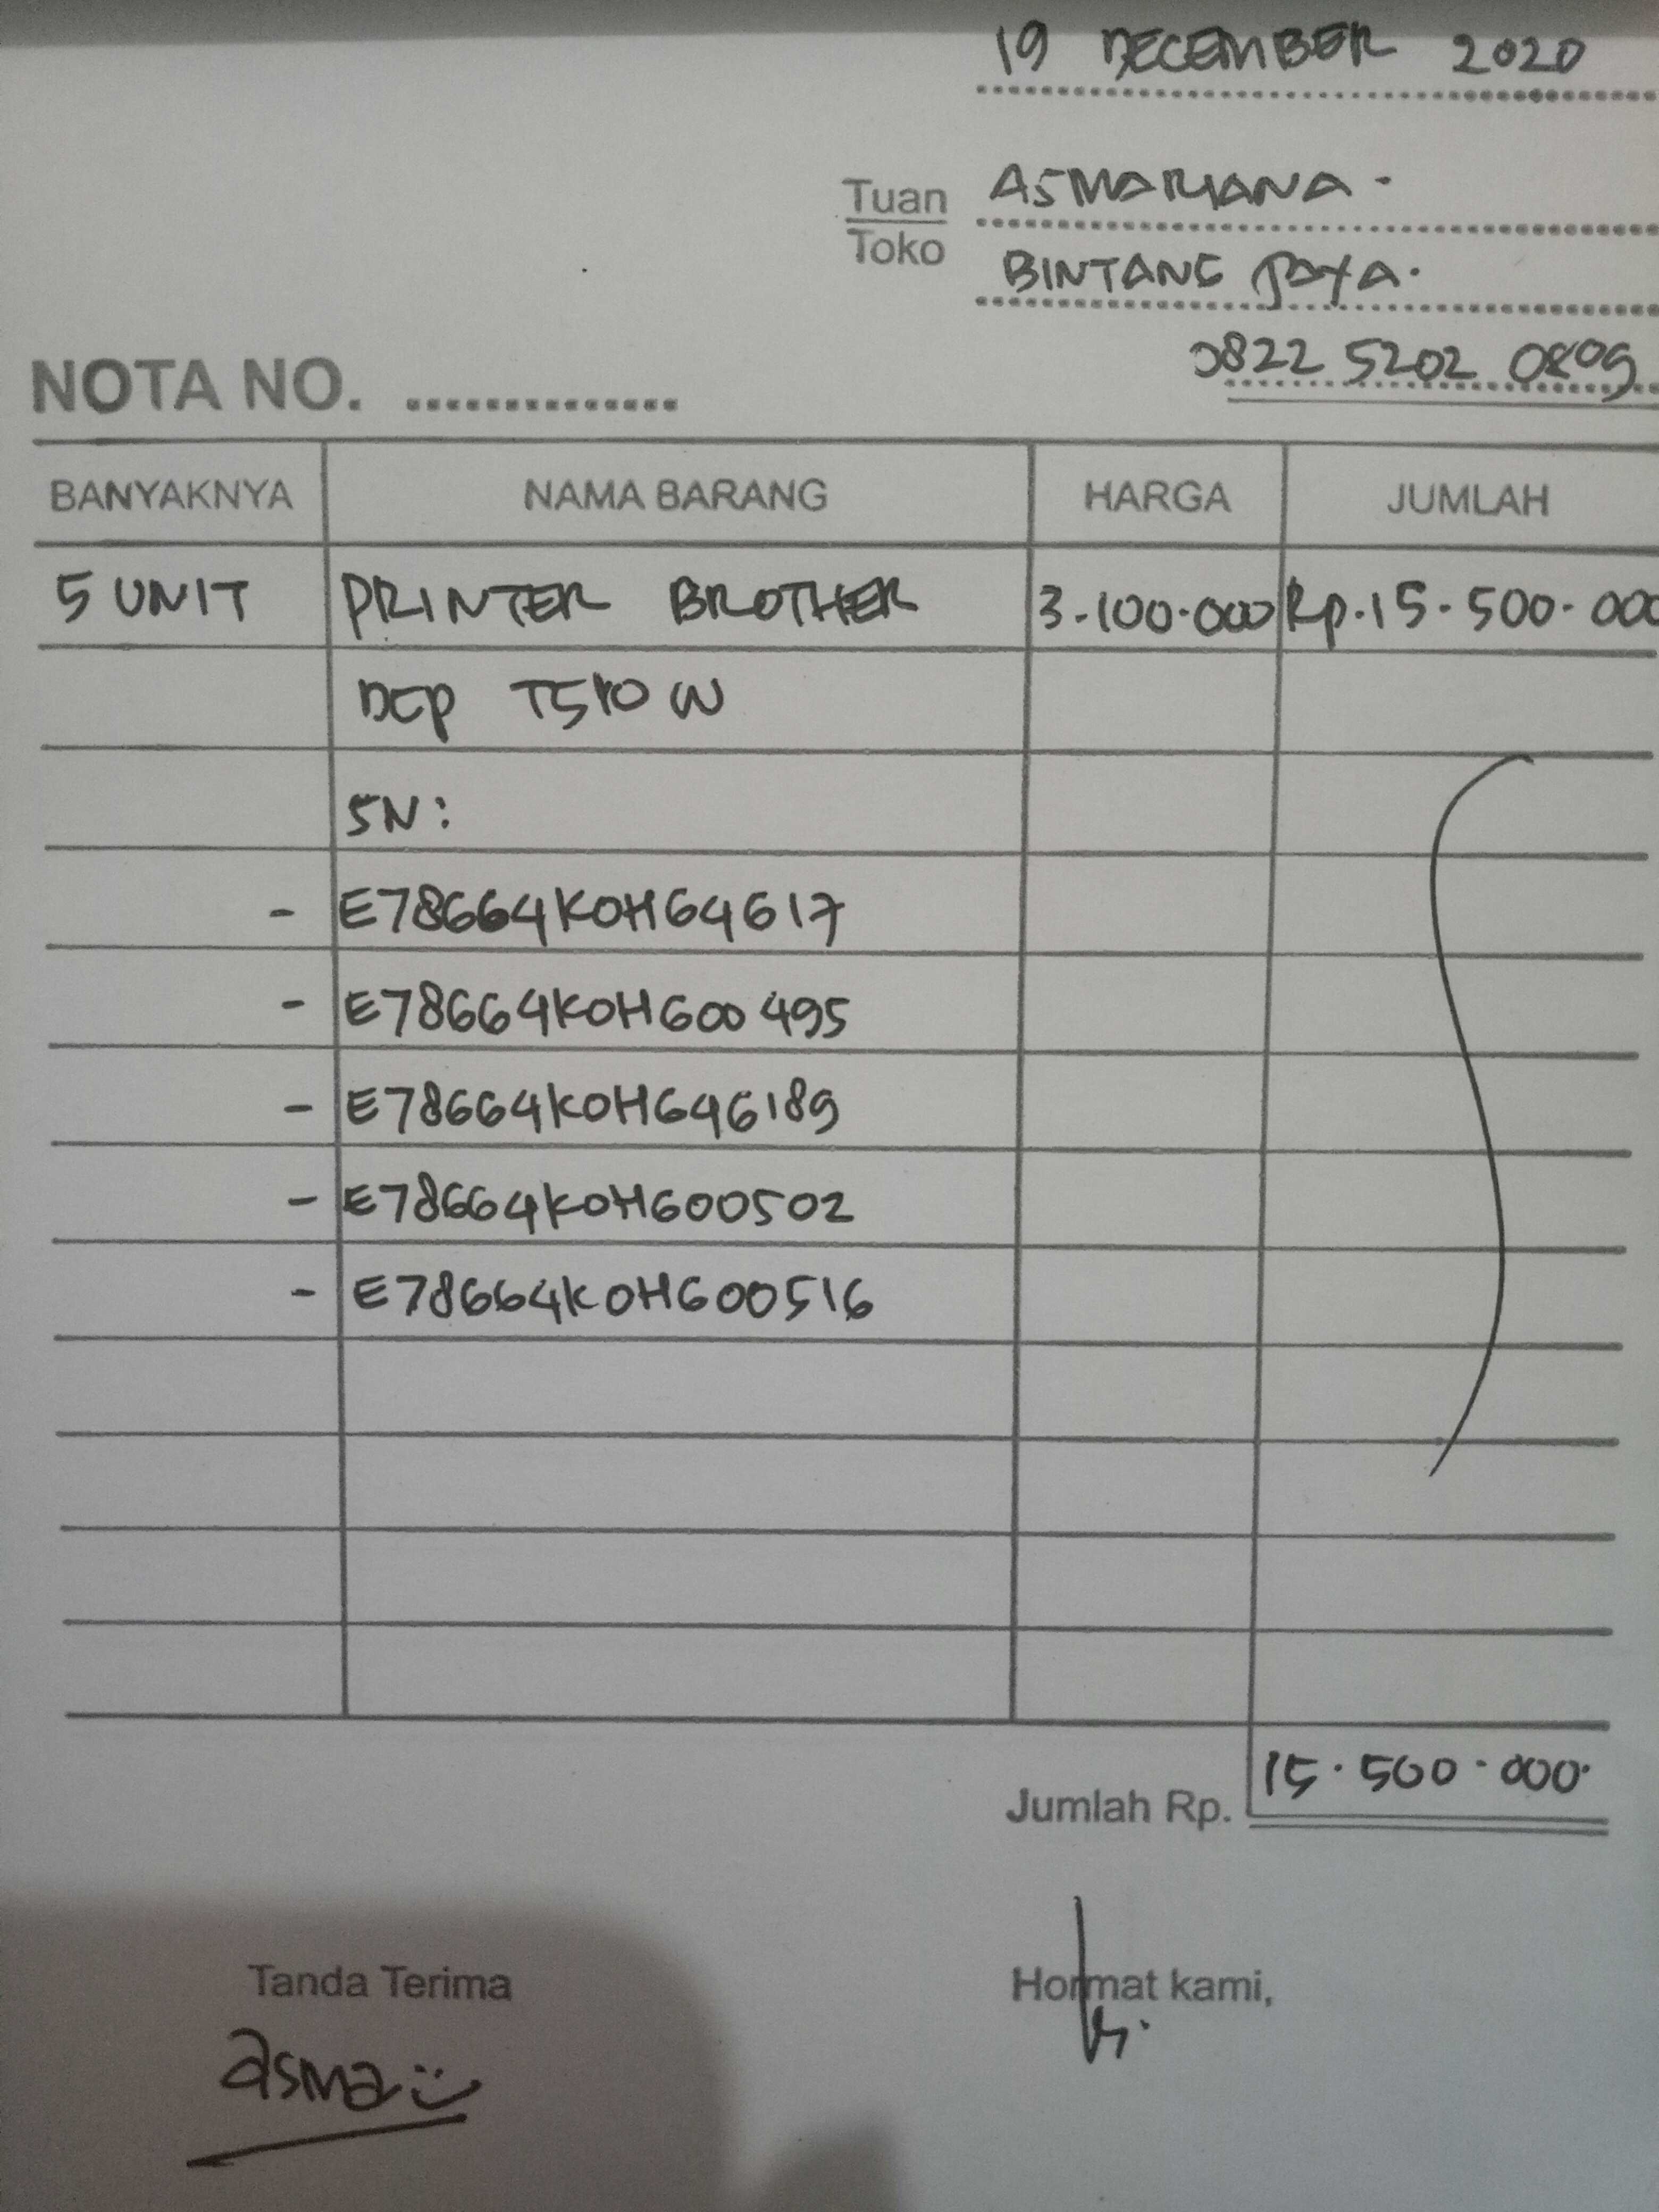 19 DECEMBER 2020
Tuan ASMARIANA.
Toko BINTANG JAYA.
NOTA NO. .............. 0822 5202 0809
BANYAKNYA NAMA BARANG HARGA JUMLAH
5 UNIT PRINTER BROTHER 3.100.000 Rp.15.500.000
DCP T510 W
SN:
- E78664K0H64617
- E78664K0H600495
- E78664K0H646189
- E78664K0H600502
- E78664K0H600516
Jumlah Rp. 15.500.000.
Tanda Terima Hormat kami,
asma